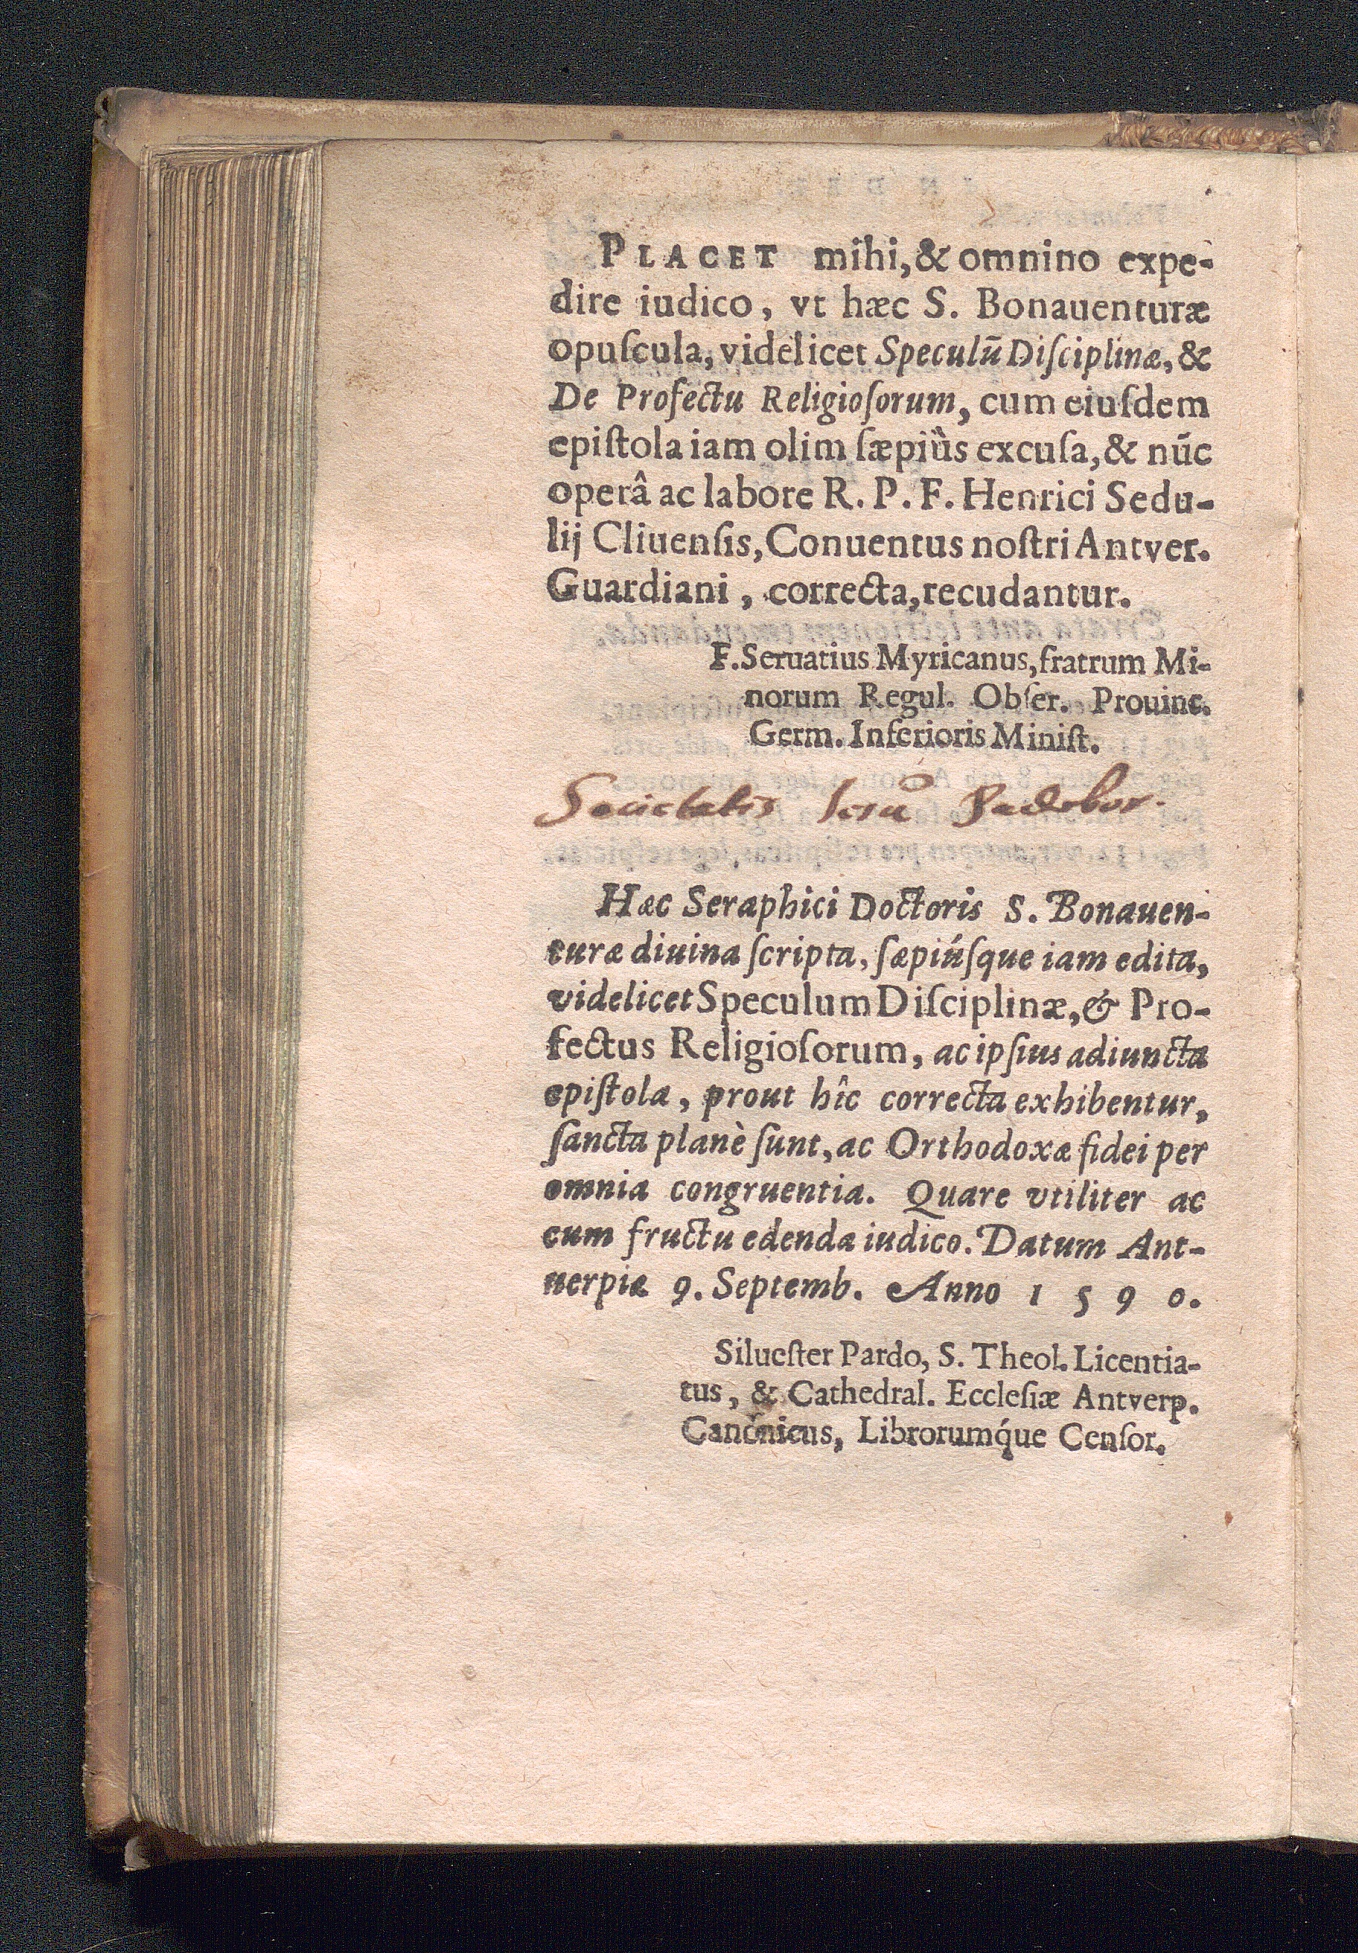 PLACET mihi, & omnino expe-
dire iudico, vt hæc S. Bonauenturæ
opuſcula, videlicet Speculũ Diſciplinæ, &
De Profectu Religioſorum, cum eiuſdem
epiſtola iam olim ſæpiùs excuſa, & nũc
operâ ac labore R. P. F. Henrici Sedu-
lij Cliuenſis, Conuentus noſtri Antver.
Guardiani, correcta, recudantur.
F. Seruatius Myricanus, fratrum Mi-
norum Regul. Obſer. Prouinc.
Germ. Inferioris Miniſt.
Societatis Iesu Paderbor.
Hæc Seraphici Doctoris S. Bonauen-
turæ diuina ſcripta, ſæpiúſque iam edita,
videlicet Speculum Diſciplinæ, & Pro-
fectus Religioſorum, ac ipſius adiuncta
epiſtola, prout hîc correcta exhibentur,
ſancta planè ſunt, ac Orthodoxæ fidei per
omnia congruentia. Quare vtiliter ac
cum fructu edenda iudico. Datum Ant-
uerpiæ 9. Septemb. Anno 1590.
Silueſter Pardo, S. Theol. Licentia-
tus, & Cathedral. Eccleſiæ Antverp.
Canonicus, Librorumq́ue Cenſor.